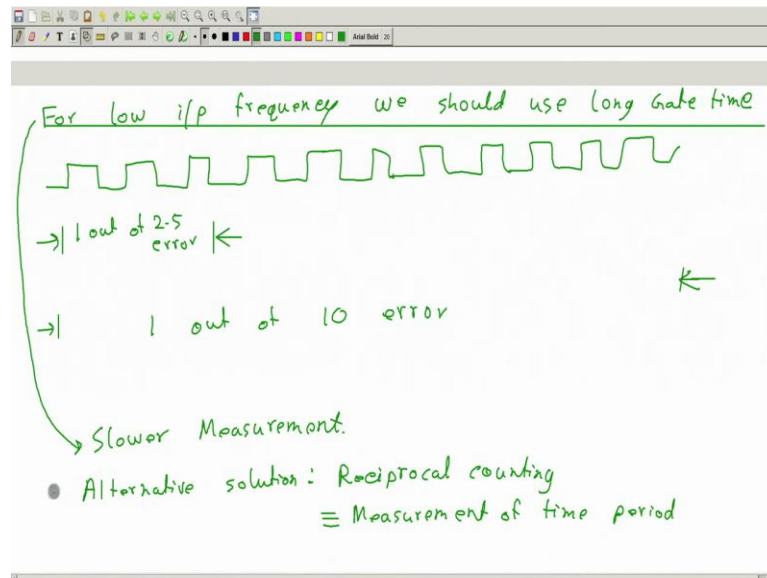 Arial Bold 20
For low i/p frequency we should use long Gate time
1 out of 2-5
error
1 out of 10 error
Slower Measurement.
Alternative solution: Reciprocal counting
≡ Measurement of time period